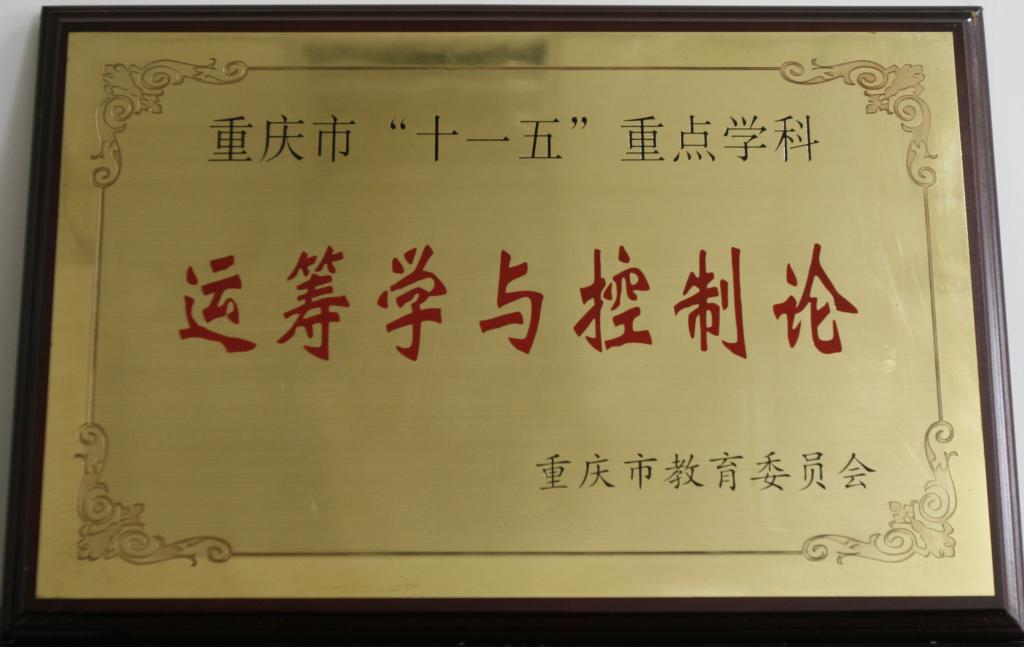 重庆市“十一五”重点学科
运筹学与控制论
重庆市教育委员会